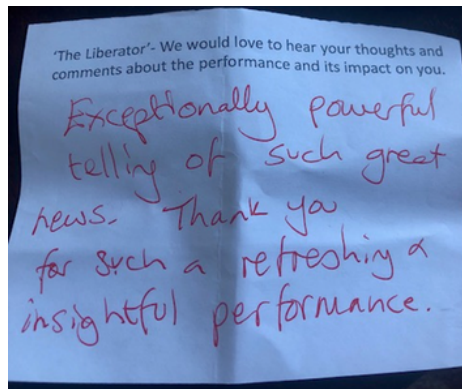 'The Liberator'- We would love to hear your thoughts and
comments about the performance and its impact on you.
Exceptionally powerful
telling of such great
news. Thank you
for such a refreshing &
insightful performance.